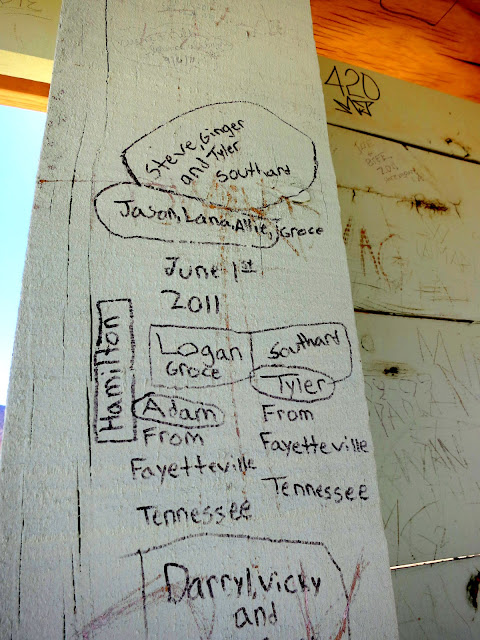 420
Steve, Ginger
and Tyler
Southard
Jason, Lana, Allie, Groce
June 1st
2011
Hamilton
Logan
Groce
Southard
Tyler
From
Fayetteville
Tennessee
Adam
From
Fayetteville
Tennessee
Darryl, Vicky
and